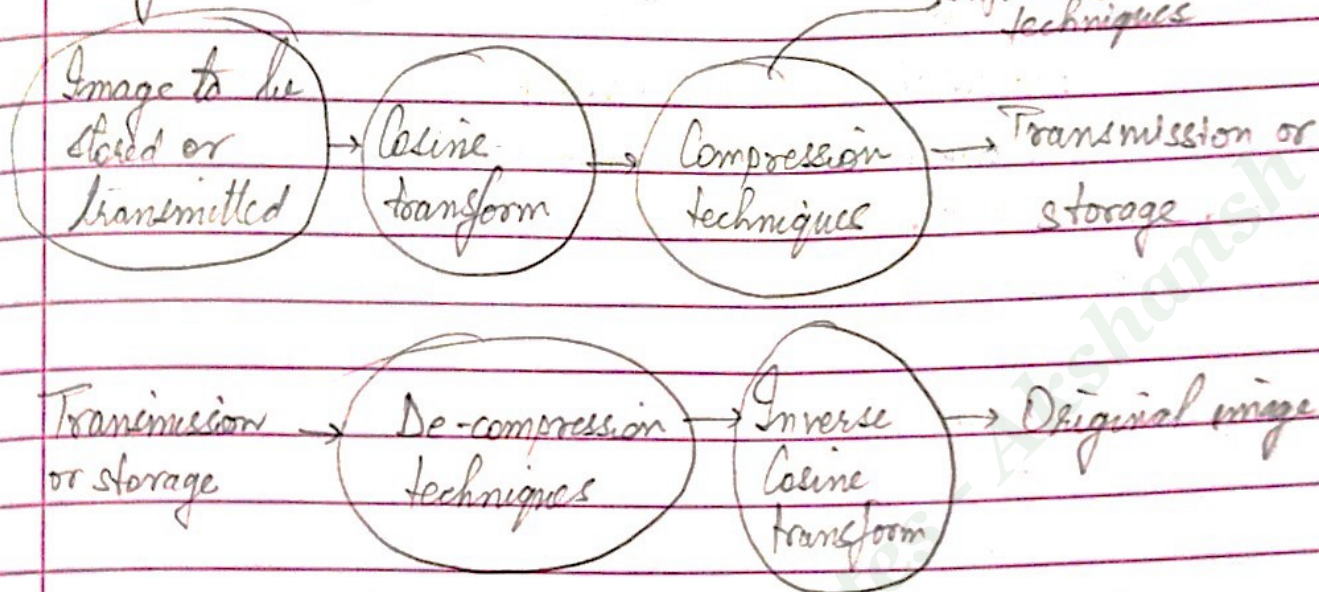 techniques
Image to be
stored or
transmitted
→ Cosine
transform
→ Compression
techniques
→ Transmission or
storage.
Transmission
or storage
→ De-compression
techniques
→ Inverse
Cosine
transform
→ Original image
Akshansh